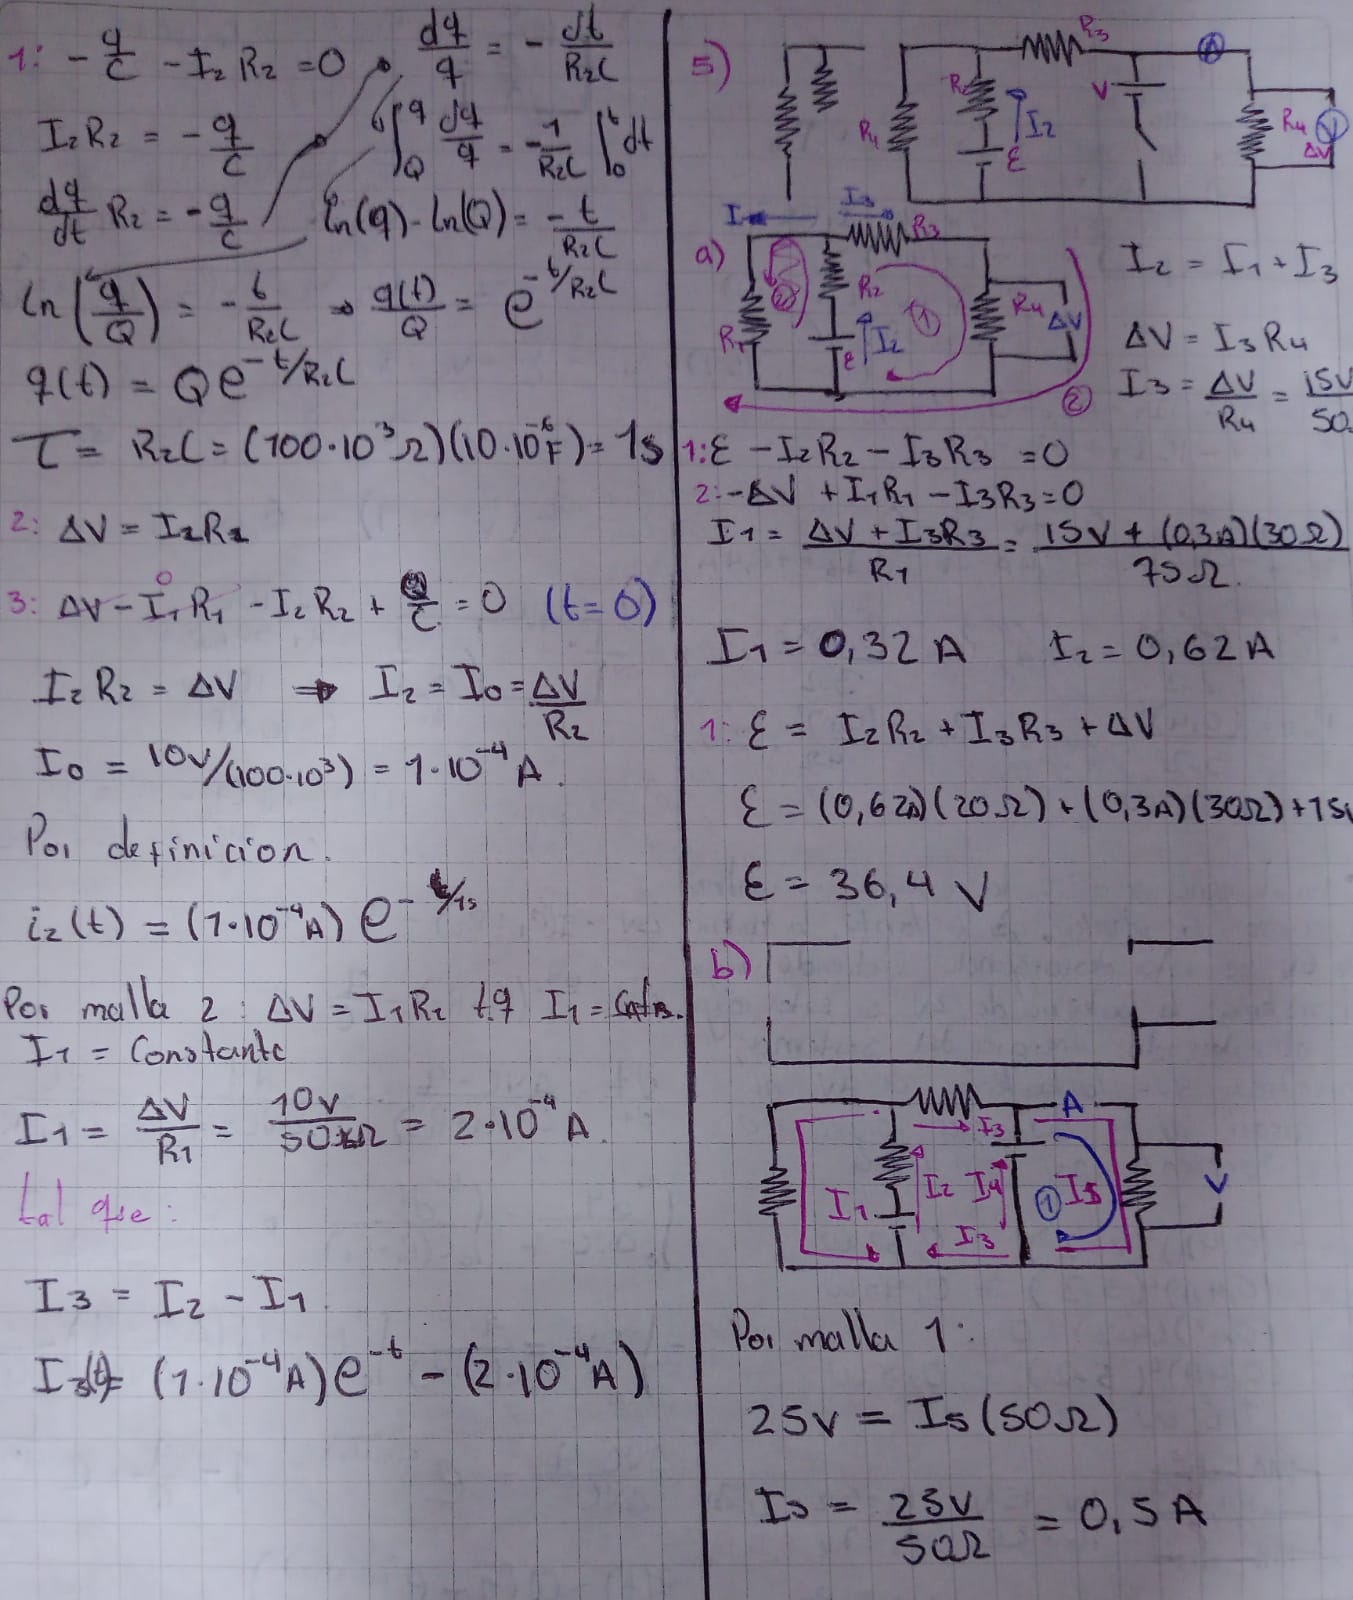 1: -q/C - I₂R₂ = 0
dq/q = - dt/R₂C
I₂R₂ = - q/C
∫_Q^q dq/q = -1/R₂C ∫_0^t dt
dq/dt R₂ = - q/C
ln(q) - ln(Q) = -t/R₂C
ln(q/Q) = - t/R₂C → q(t)/Q = e^(-t/R₂C)
q(t) = Qe^(-t/R₂C)
τ = R₂C = (100·10³Ω)(10·10⁻⁶F) = 1s
2: ΔV = I₂R₂
3: ΔV - I₁R₁ - I₂R₂ + Q/C = 0 (t=0)
0
I₂R₂ = ΔV ⇒ I₂ = I₀ = ΔV/R₂
I₀ = 10V/(100·10³) = 1·10⁻⁴ A.
Por definicion.
i₂(t) = (1·10⁻⁴A) e^(-t/1s)
Por malla 2: ΔV = I₁R₁ t.q I₁ =
I₁ = Constante
I₁ = ΔV/R₁ = 10V/50kΩ = 2·10⁻⁴ A.
tal que:
I₃ = I₂ - I₁
I₃(t) = (1·10⁻⁴A)e^(-t) - (2·10⁻⁴A)
5)
R₃
A
R₁
R₂
I₂
ε
V
R₄
ΔV
a)
I
I₃
R₃
R₁
R₂
ε
I₂
1
2
R₄
ΔV
2
I₂ = I₁ + I₃
ΔV = I₃R₄
I₃ = ΔV/R₄ = 15V/50
1: ε - I₂R₂ - I₃R₃ = 0
2: -ΔV + I₁R₁ - I₃R₃ = 0
I₁ = ΔV + I₃R₃/R₁ = 15V + (0,3A)(30Ω)/75Ω.
I₁ = 0,32A I₂ = 0,62A
1: ε = I₂R₂ + I₃R₃ + ΔV
ε = (0,62A)(20Ω) + (0,3A)(30Ω) + 15V
ε = 36,4 V
b)
A
I₃
I₁
I₂
I₄
1
I₅
V
I₃
Por malla 1:
25V = I₅(50Ω)
I₅ = 25V/50Ω = 0,5A